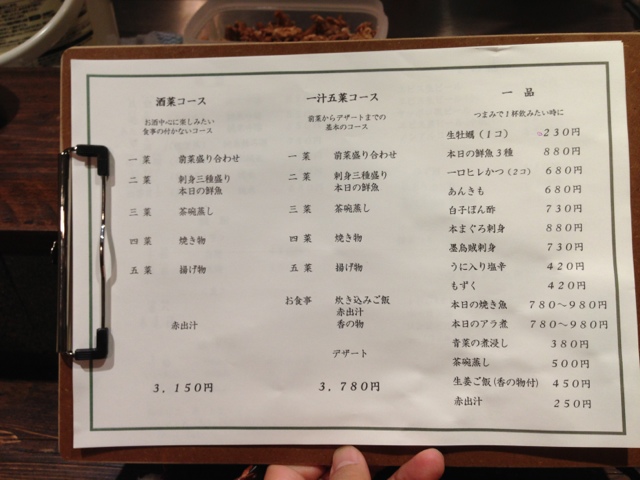 酒菜コース
お酒中心に楽しみたい
食事の付かないコース
一 菜 前菜盛り合わせ
二 菜 刺身三種盛り
本日の鮮魚
三 菜 茶碗蒸し
四 菜 焼き物
五 菜 揚げ物
赤出汁
3，150円
一汁五菜コース
前菜からデザートまでの
基本のコース
一 菜 前菜盛り合わせ
二 菜 刺身三種盛り
本日の鮮魚
三 菜 茶碗蒸し
四 菜 焼き物
五 菜 揚げ物
お食事 炊き込みご飯
赤出汁
香の物
デザート
3，780円
一 品
つまみで1杯飲みたい時に
生牡蠣（1コ） 230円
本日の鮮魚3種 880円
一口ヒレかつ（2コ） 680円
あんきも 680円
白子ぽん酢 730円
本まぐろ刺身 880円
墨烏賊刺身 730円
うに入り塩辛 420円
もずく 420円
本日の焼き魚 780〜980円
本日のアラ煮 780〜980円
青菜の煮浸し 380円
茶碗蒸し 500円
生姜ご飯(香の物付) 450円
赤出汁 250円